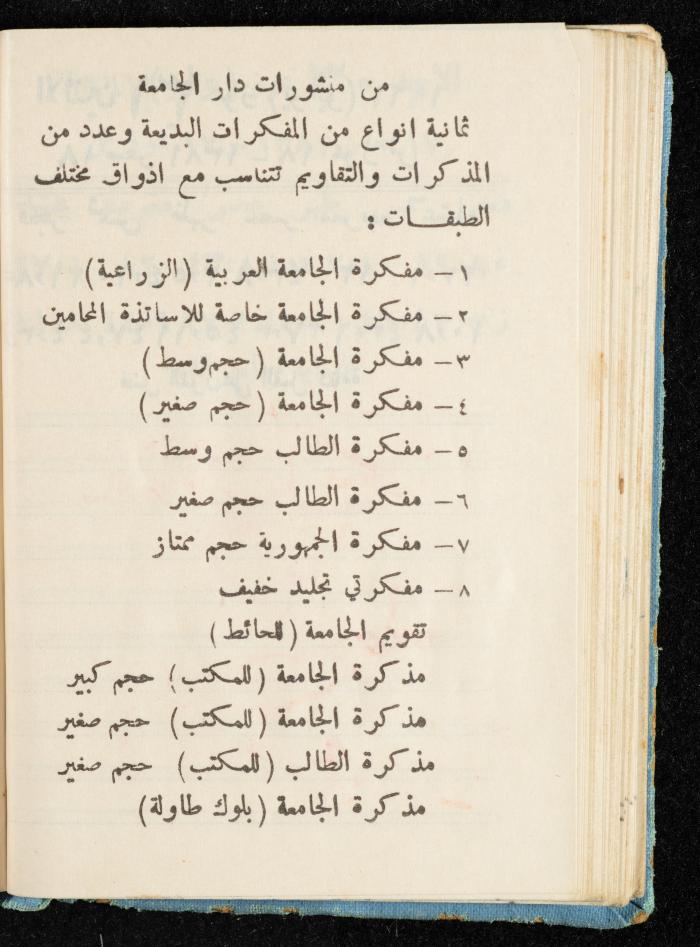 من منشورات دار الجامعة
ثمانية انواع من المفكرات البديعة وعدد من
المذكرات والتقاويم تتناسب مع اذواق مختلف
الطبقــات :
١ – مفكرة الجامعة العربية (الزراعية)
٢ – مفكرة الجامعة خاصة للاساتذة المحامين
٣ – مفكرة الجامعة (حجم وسط)
٤ – مفكرة الجامعة (حجم صغير)
٥ – مفكرة الطالب حجم وسط
٦ – مفكرة الطالب حجم صغير
٧ – مفكرة الجمهورية حجم ممتاز
٨ – مفكرتي تجليد خفيف
تقويم الجامعة (للحائط)
مذكرة الجامعة (للمكتب) حجم كبير
مذكرة الجامعة (للمكتب) حجم صغير
مذكرة الطالب (للمكتب) حجم صغير
مذكرة الجامعة (بلوك طاولة)